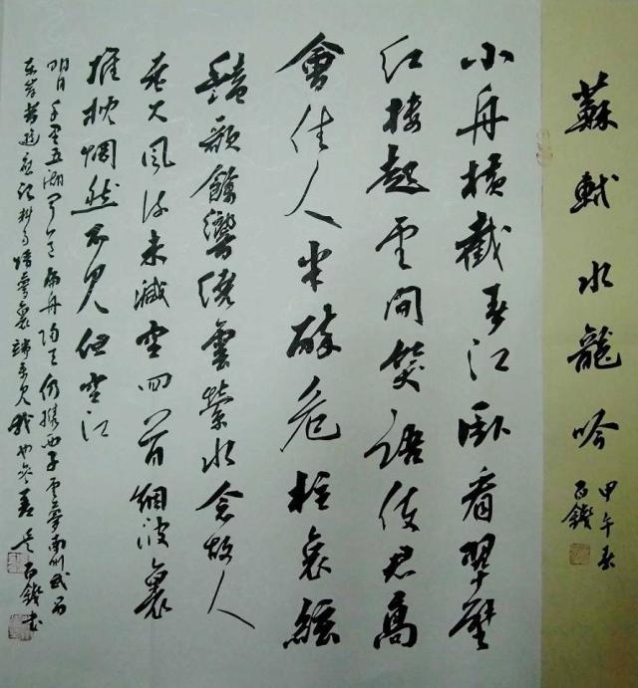 蘇軾水龍吟
甲午春
小舟橫截春江臥看翠壁
紅樓起雲間笑語使君高
會佳人半醉危柱哀絃
豔歌餘響繞雲縈水念故人
老大風流未減空回首烟波裏
推枕惘然不見但空江
明月千里五湖聞道扁舟歸去仍攜西子雲夢南州武昌
東岸昔遊應記料多情夢裏端來見我也參差是 書